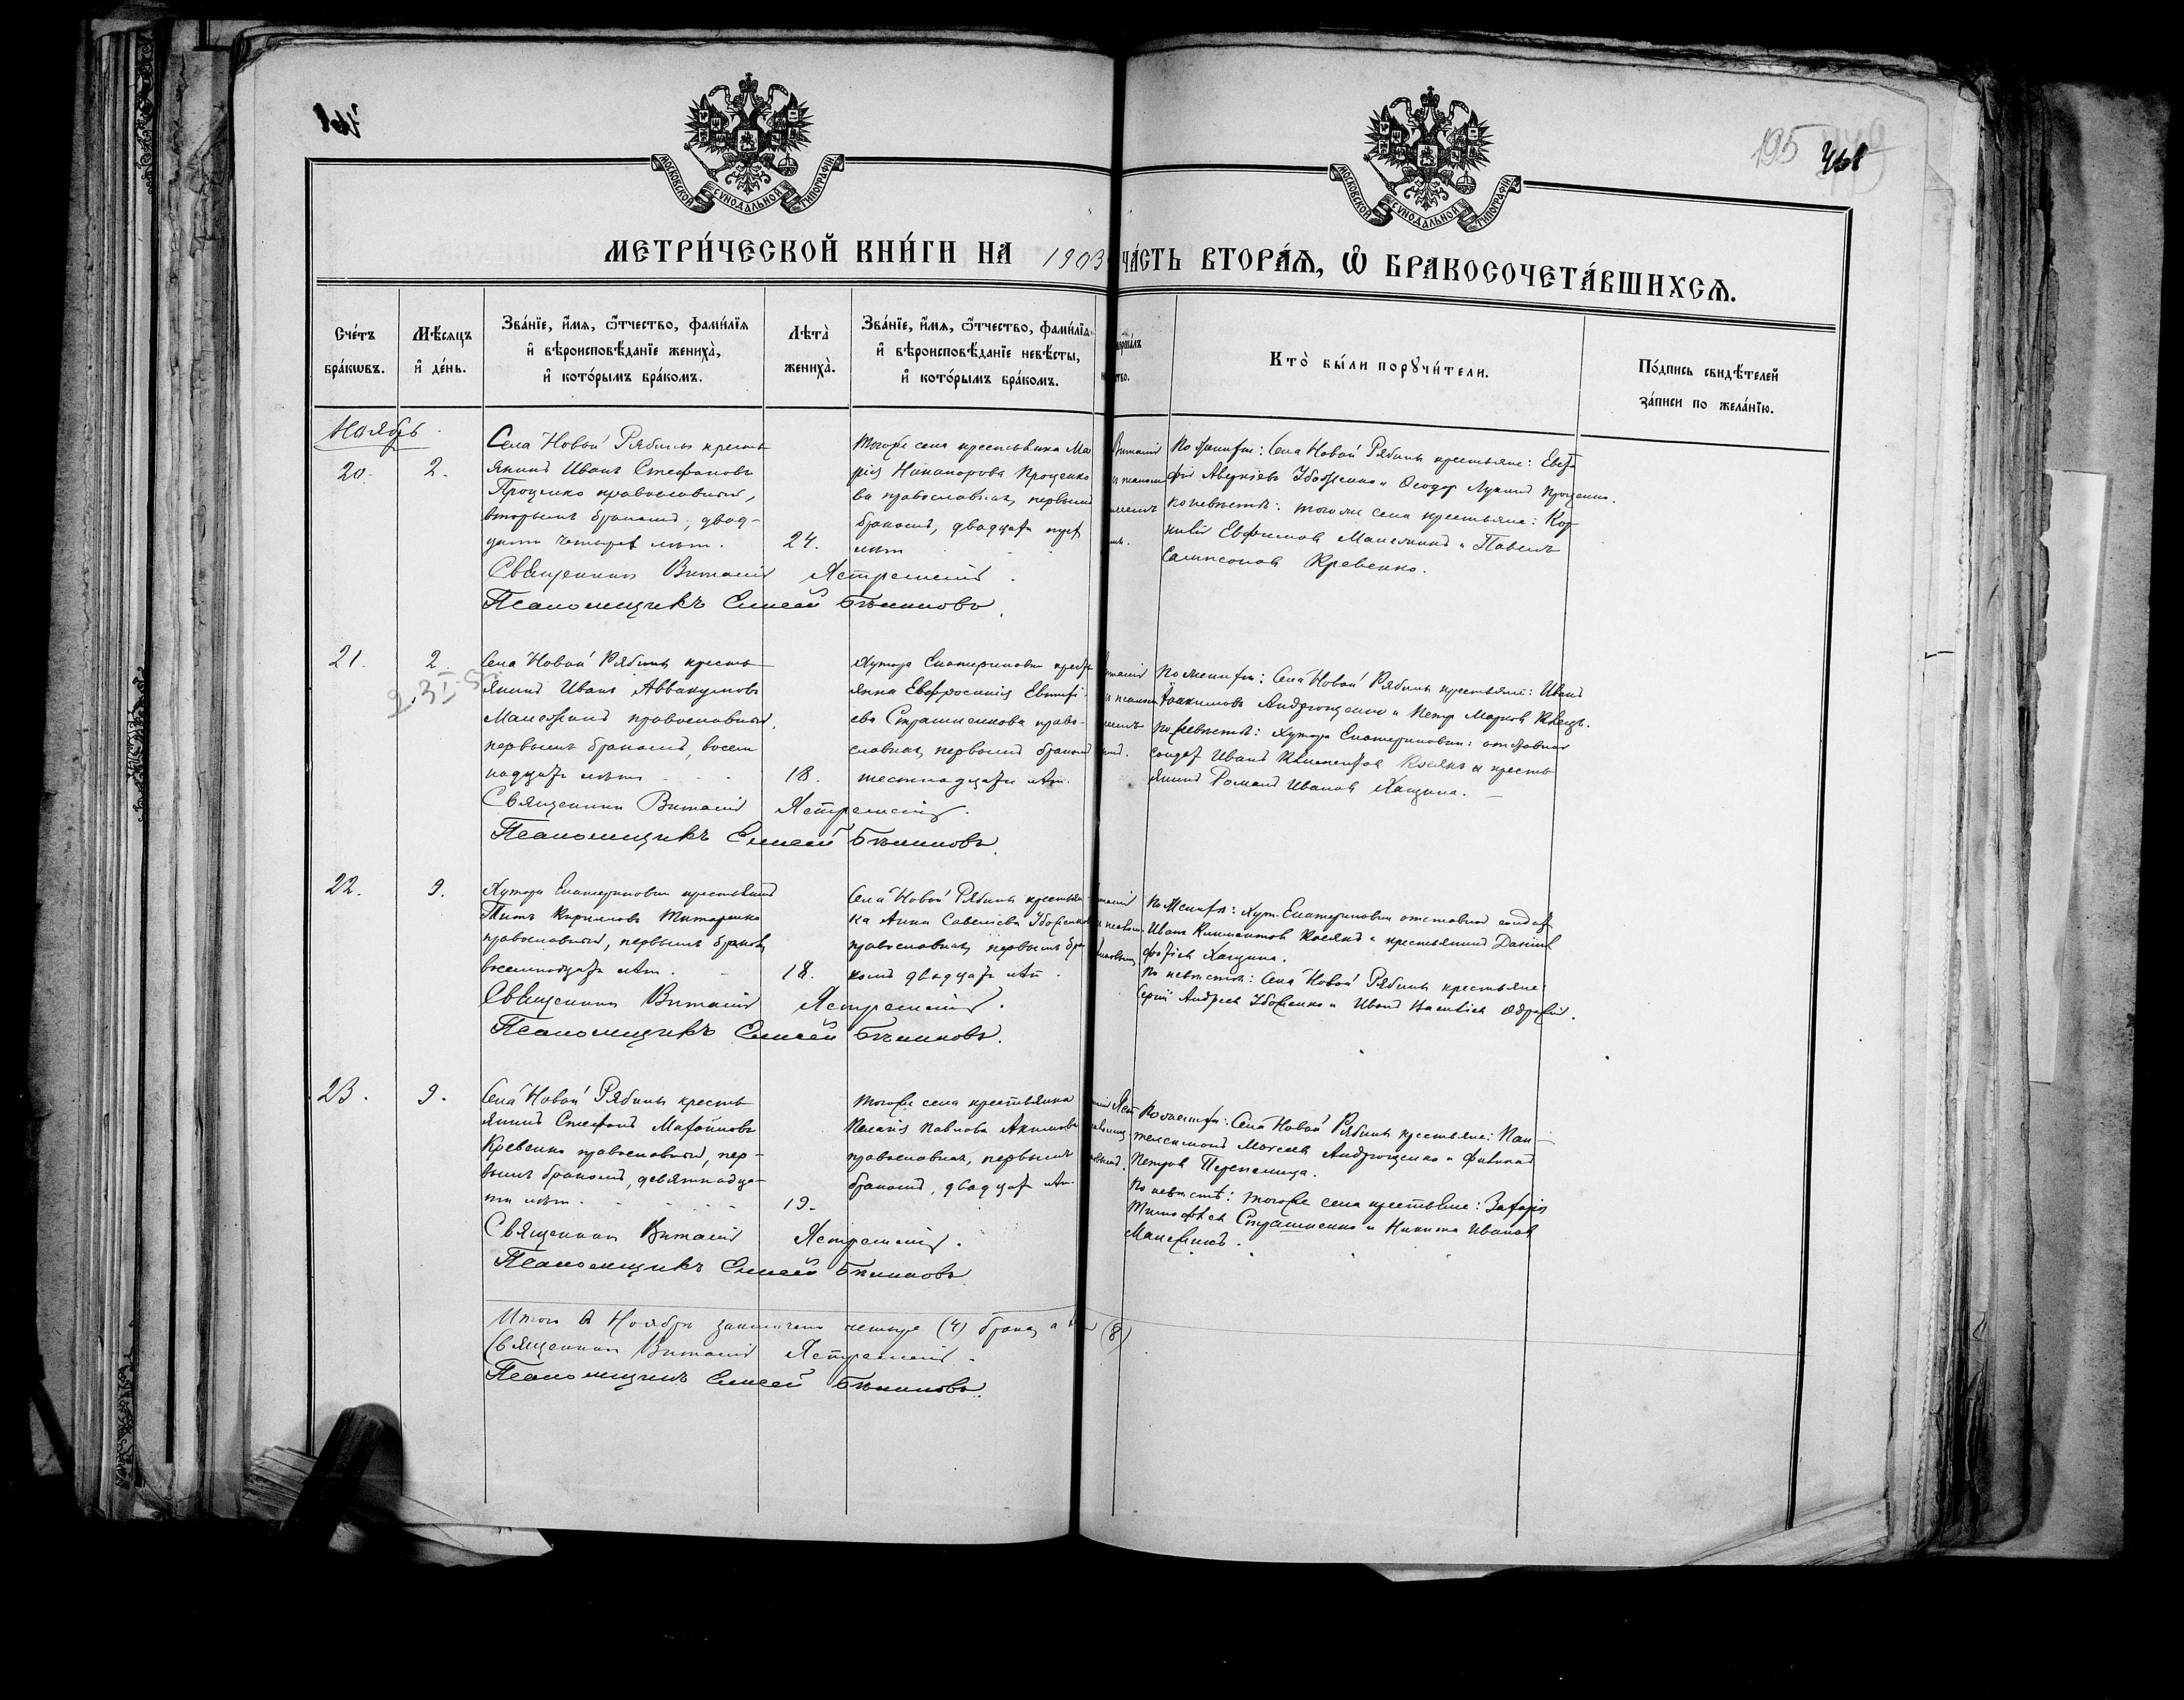 195
468
МОСКОВСКОЙ СѴНОДАЛЬНОЙ ТИПОГРАФІИ
МОСКОВСКОЙ СѴНОДАЛЬНОЙ ТИПОГРАФІИ
МЕТРИ́ЧЕСКОЙ КНИ́ГИ НА 1903
ЧА́СТЬ ВТОРА́Ѧ, Ѽ БРАКОСОЧЕТА́ВШИХСѦ.
Сче́тъ бра́кѡвъ.
Мѣ́сяцъ и҆ де́нь.
Зва́нїе, и҆́мѧ, ѻ҆́тчество, фами́лїѧ
и҆ вѣроисповѣ́данїе жениха̀,
и҆ кото́рымъ бра́комъ.
Лѣ́та̀ жениха̀.
Зва́нїе, и҆́мѧ, ѻ҆́тчество, фами́лїѧ
и҆ вѣроисповѣ́данїе невѣ́сты,
и҆ кото́рымъ бра́комъ.
Кто̀ бы́ли порꙋчи́тели.
По́дпись свидѣ́телей
за́писи по жела́нїю.
Ноябрь
20.
2.
Села Новой Рябины кресть
янинъ Иванъ Стефановъ
Проценко православный,
вторымъ бракомъ, двад-
цати четырех лѣт.
24.
Тогоже села крестьянка Ма
рія Никанорова Проценко
ва православная, первымъ
бракомъ, двадцати
лѣт
По женихѣ: Села Новой Рябины крестьяне:
Аверкіевъ Убоженко и Ѳеодор Лукинъ Проценко.
По невѣстѣ: тогоже села крестьяне: Кор
нилій Евфимов Манежинъ и Павелъ
Сампсонов Кревенко.
Священникъ Виталій Ястремскій.
Псаломщикъ Елисей Бѣликовъ.
21.
2
Села Новой Рябины кресть
янинъ Иванъ Аввакумовъ
православный,
первымъ бракомъ, восем
надцати лѣтъ
18.
Хутора Екатериновки кресть
янка Евфросинія
ева Страшненкова право-
славная, первымъ бракомъ
шестнадцати лѣт.
По женихѣ: Села Новой Рябины крестьяне: Иванъ
Іоакимовъ Андрющенко и Петр Марков Квецъ.
По невѣстѣ: Хутора Екатериновки: отставной
солдат Иванъ Климентов Коснякъ и кресть
янинъ Романъ Иванов Хапцина.
Священникъ Виталій Ястремскій.
Псаломщикъ Елисей Бѣликовъ.
22.
9.
Хутора Екатериновки крестьянинъ
Титъ Кириллов Титаренко
православный, первымъ бракомъ
восемнадцати лѣт.
18.
Села Новой Рябины крестьян
ка Анна Савеліева Убоженкова
православная, первымъ бра
комъ двадцати лѣт.
По женихѣ: Хут. Екатериновки отставной солдат
Иванъ Климентов Коснякъ и крестьянинъ Даніилъ
Хапцина.
По невѣстѣ: Села Новой Рябины крестьяне:
Сергій Андреев Убоженко и Иванъ Васильев
Священникъ Виталій Ястремскій.
Псаломщикъ Елисей Бѣликовъ.
23.
9.
Села Новой Рябины кресть
янинъ Стефанъ
Кревенко православный, пер-
вымъ бракомъ, девятнадца-
ти лѣт.
19.
Тогоже села крестьянка
Пелагія Павлова Акимова
православная, первымъ
бракомъ, двадцати лѣт.
По женихѣ: Села Новой Рябины крестьяне: Пан-
телеимонъ Моисеев Андрющенко и Филиппъ
Петров Перепелица.
По невѣстѣ: Тогоже села крестьяне: Захарія
Тимофеев Страшненко и Никита Иванов
Священникъ Виталій Ястремскій.
Псаломщикъ Елисей Бѣликовъ.
Итого в Ноябрѣ заключено четыре (4) брака (8)
Священникъ Виталій Ястремскій.
Псаломщикъ Елисей Бѣликовъ.